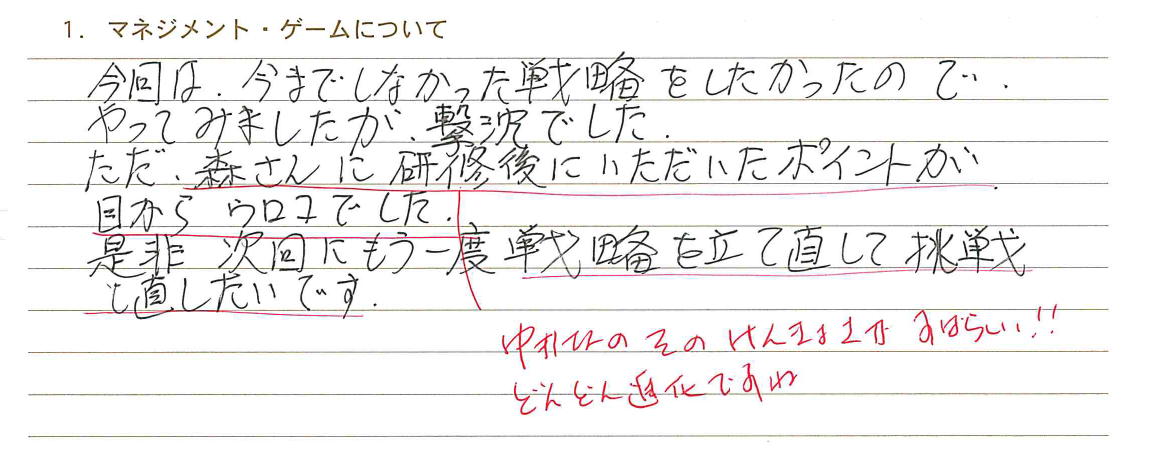 1. マネジメント・ゲームについて
今回は、今までしなかった戦略をしたかったので、
やってみましたが、撃沈でした。
ただ、森さんに研修後にいただいたポイントが、
目からウロコでした。
是非次回にもう一度戦略を立て直して挑戦
し直したいです。
のそのけんきょさがすばらしい!!
どんどん進化ですね